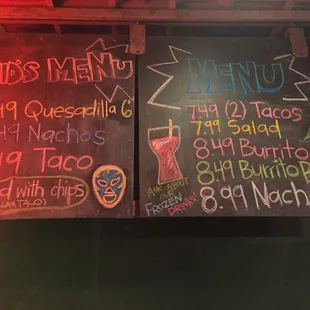 ID'S MENU
49 Quesadilla 6"
49 Nachos
49 Taco
d with chips
MENU
7.49 (2) Tacos
7.99 Salad
8.49 Burrito
8.49 Burrito B
8.99 Nach
ASK ABOUT
OUR
FROZEN
DRINKS